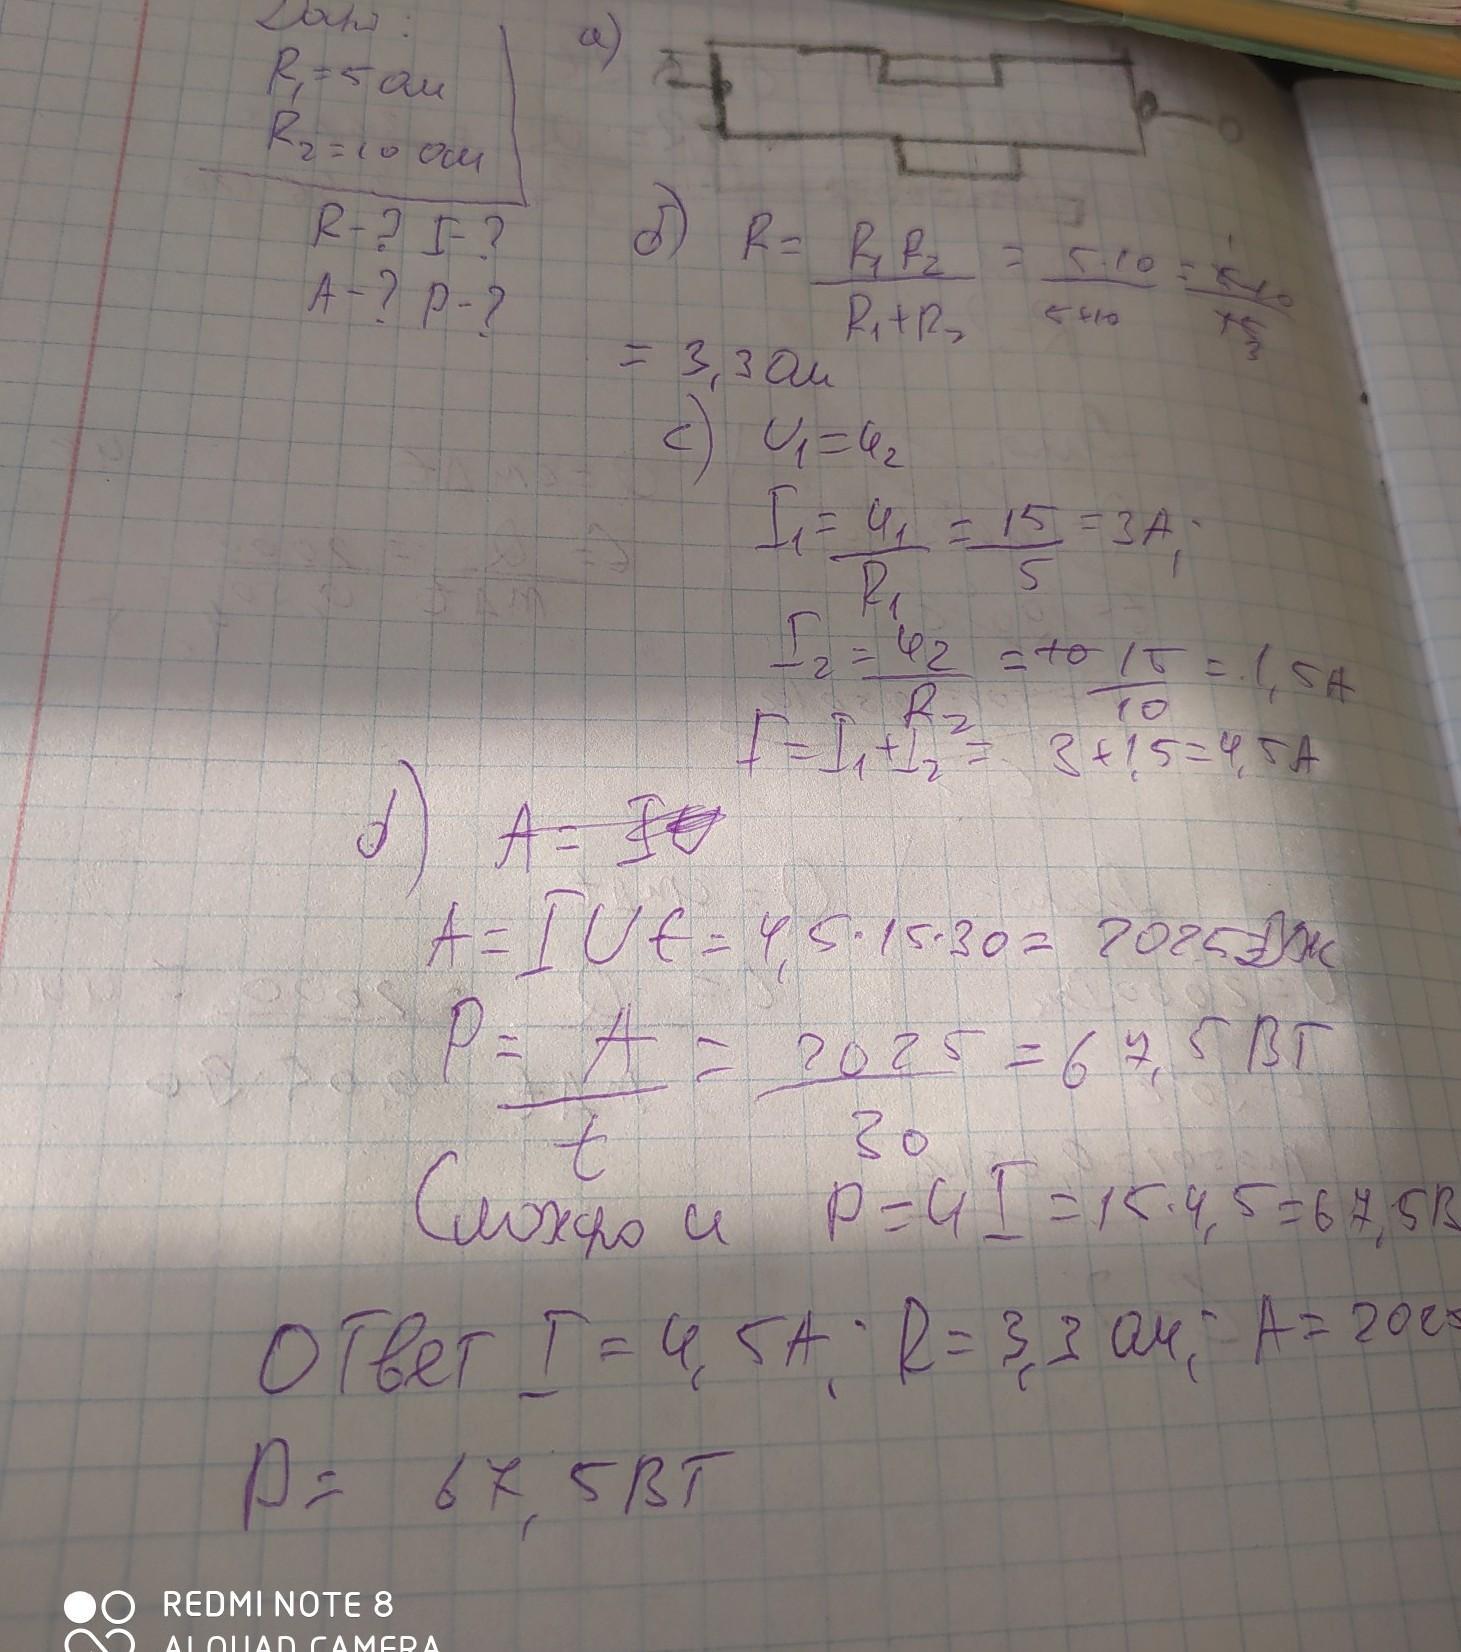 Дано:
R₁=5 Ом
R₂=10 Ом
R-? I-?
A-? P-?
а)
б) R = R₁R₂ / R₁+R₂ = 5·10 / 5+10 = 5·10 / 15 3
= 3,3 Ом
с) U₁=U₂
I₁ = U₁ / R₁ = 15 / 5 = 3A;
I₂ = U₂ / R₂ = 10 15 / 10 = 1,5A
I=I₁+I₂ = 3+1,5=4,5A
d) A = I
A=IUt=4,5·15·30= 2025Дж
P = A / t = 2025 / 30 = 67,5 Вт
(можно и P=UI=15·4,5=67,5В
Ответ I=4,5A; R=3,3 Ом; A=2025
P= 67,5Вт
REDMI NOTE 8
AI QUAD CAMERA